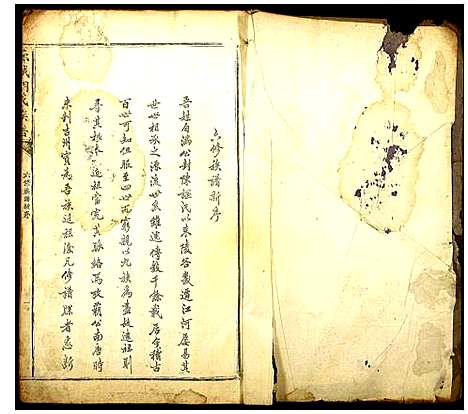 六修族譜新序
吾姓自滿公封陳謚氏以來陵谷變遷江河屢易其
世世相承之源流世系雖遠傳數千餘載居今稽古
百世可知但服至四世而窮親以九族為盡故遠祖則
尋其根本近祖宜究其脉絡焉攷霸公南唐時
來刺吉州實為吾族遠祖後凡修譜牒者悉斯
六修族譜新序